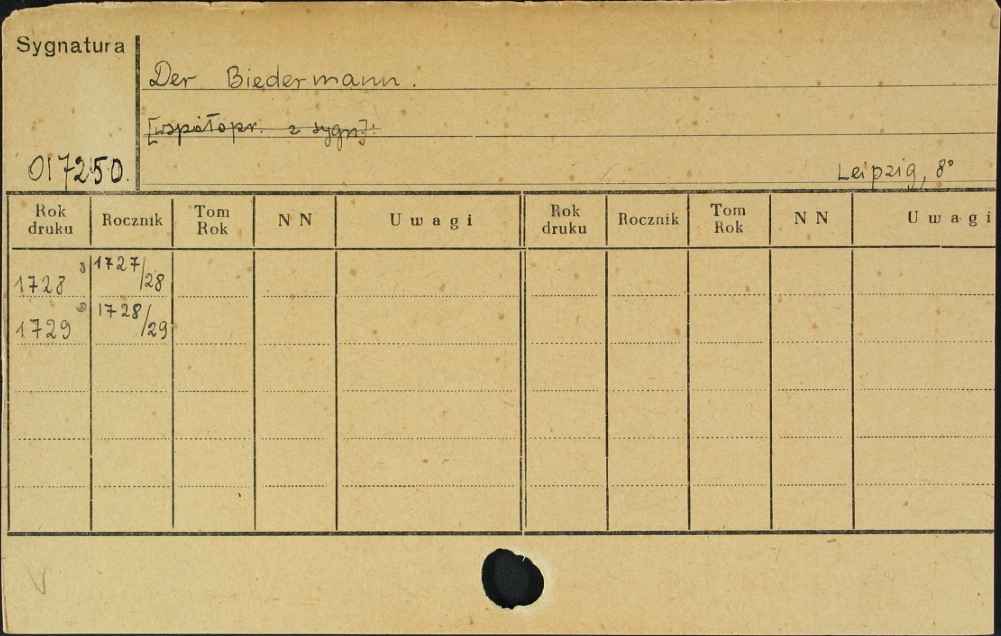 Sygnatura
Der Biedermann.
[współopr. z sygn]:
017250.
Leipzig, 8°
Rok druku Rocznik Tom Rok NN Uwagi Rok druku Rocznik Tom Rok NN Uwagi
1728 1727/28
1729 1728/29